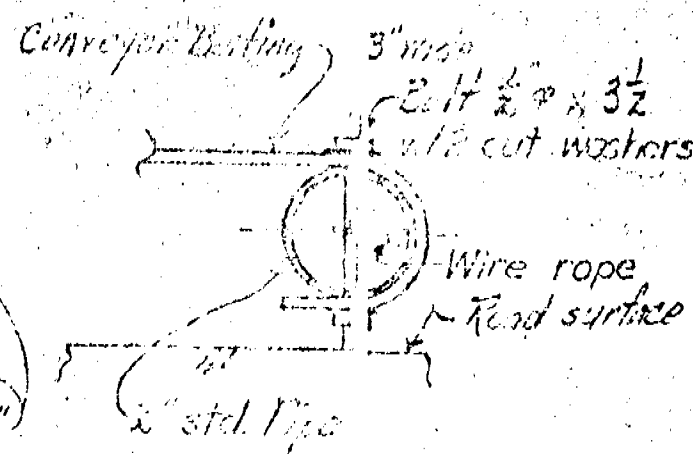 Conveyor Belting
3" max
Bolt ½"φ x 3½
w/2 cut washers
Wire rope
Road surface
2" std. Pipe